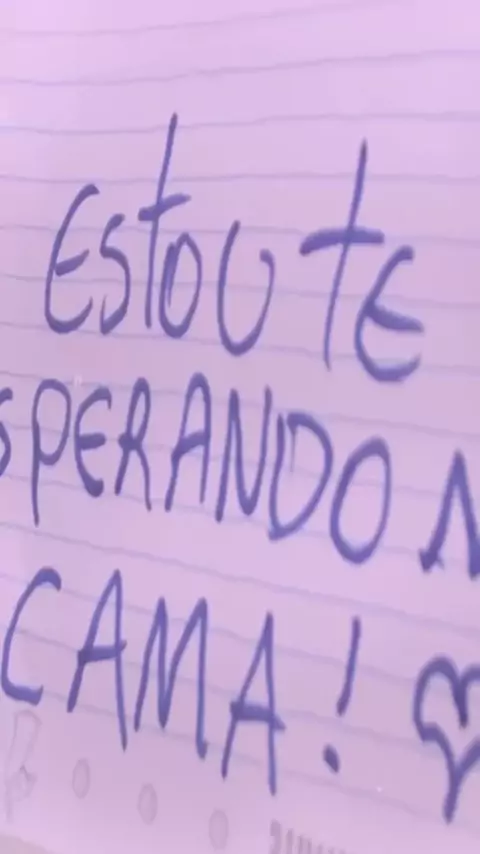 ESTOU TE
SPERANDO N
CAMA!